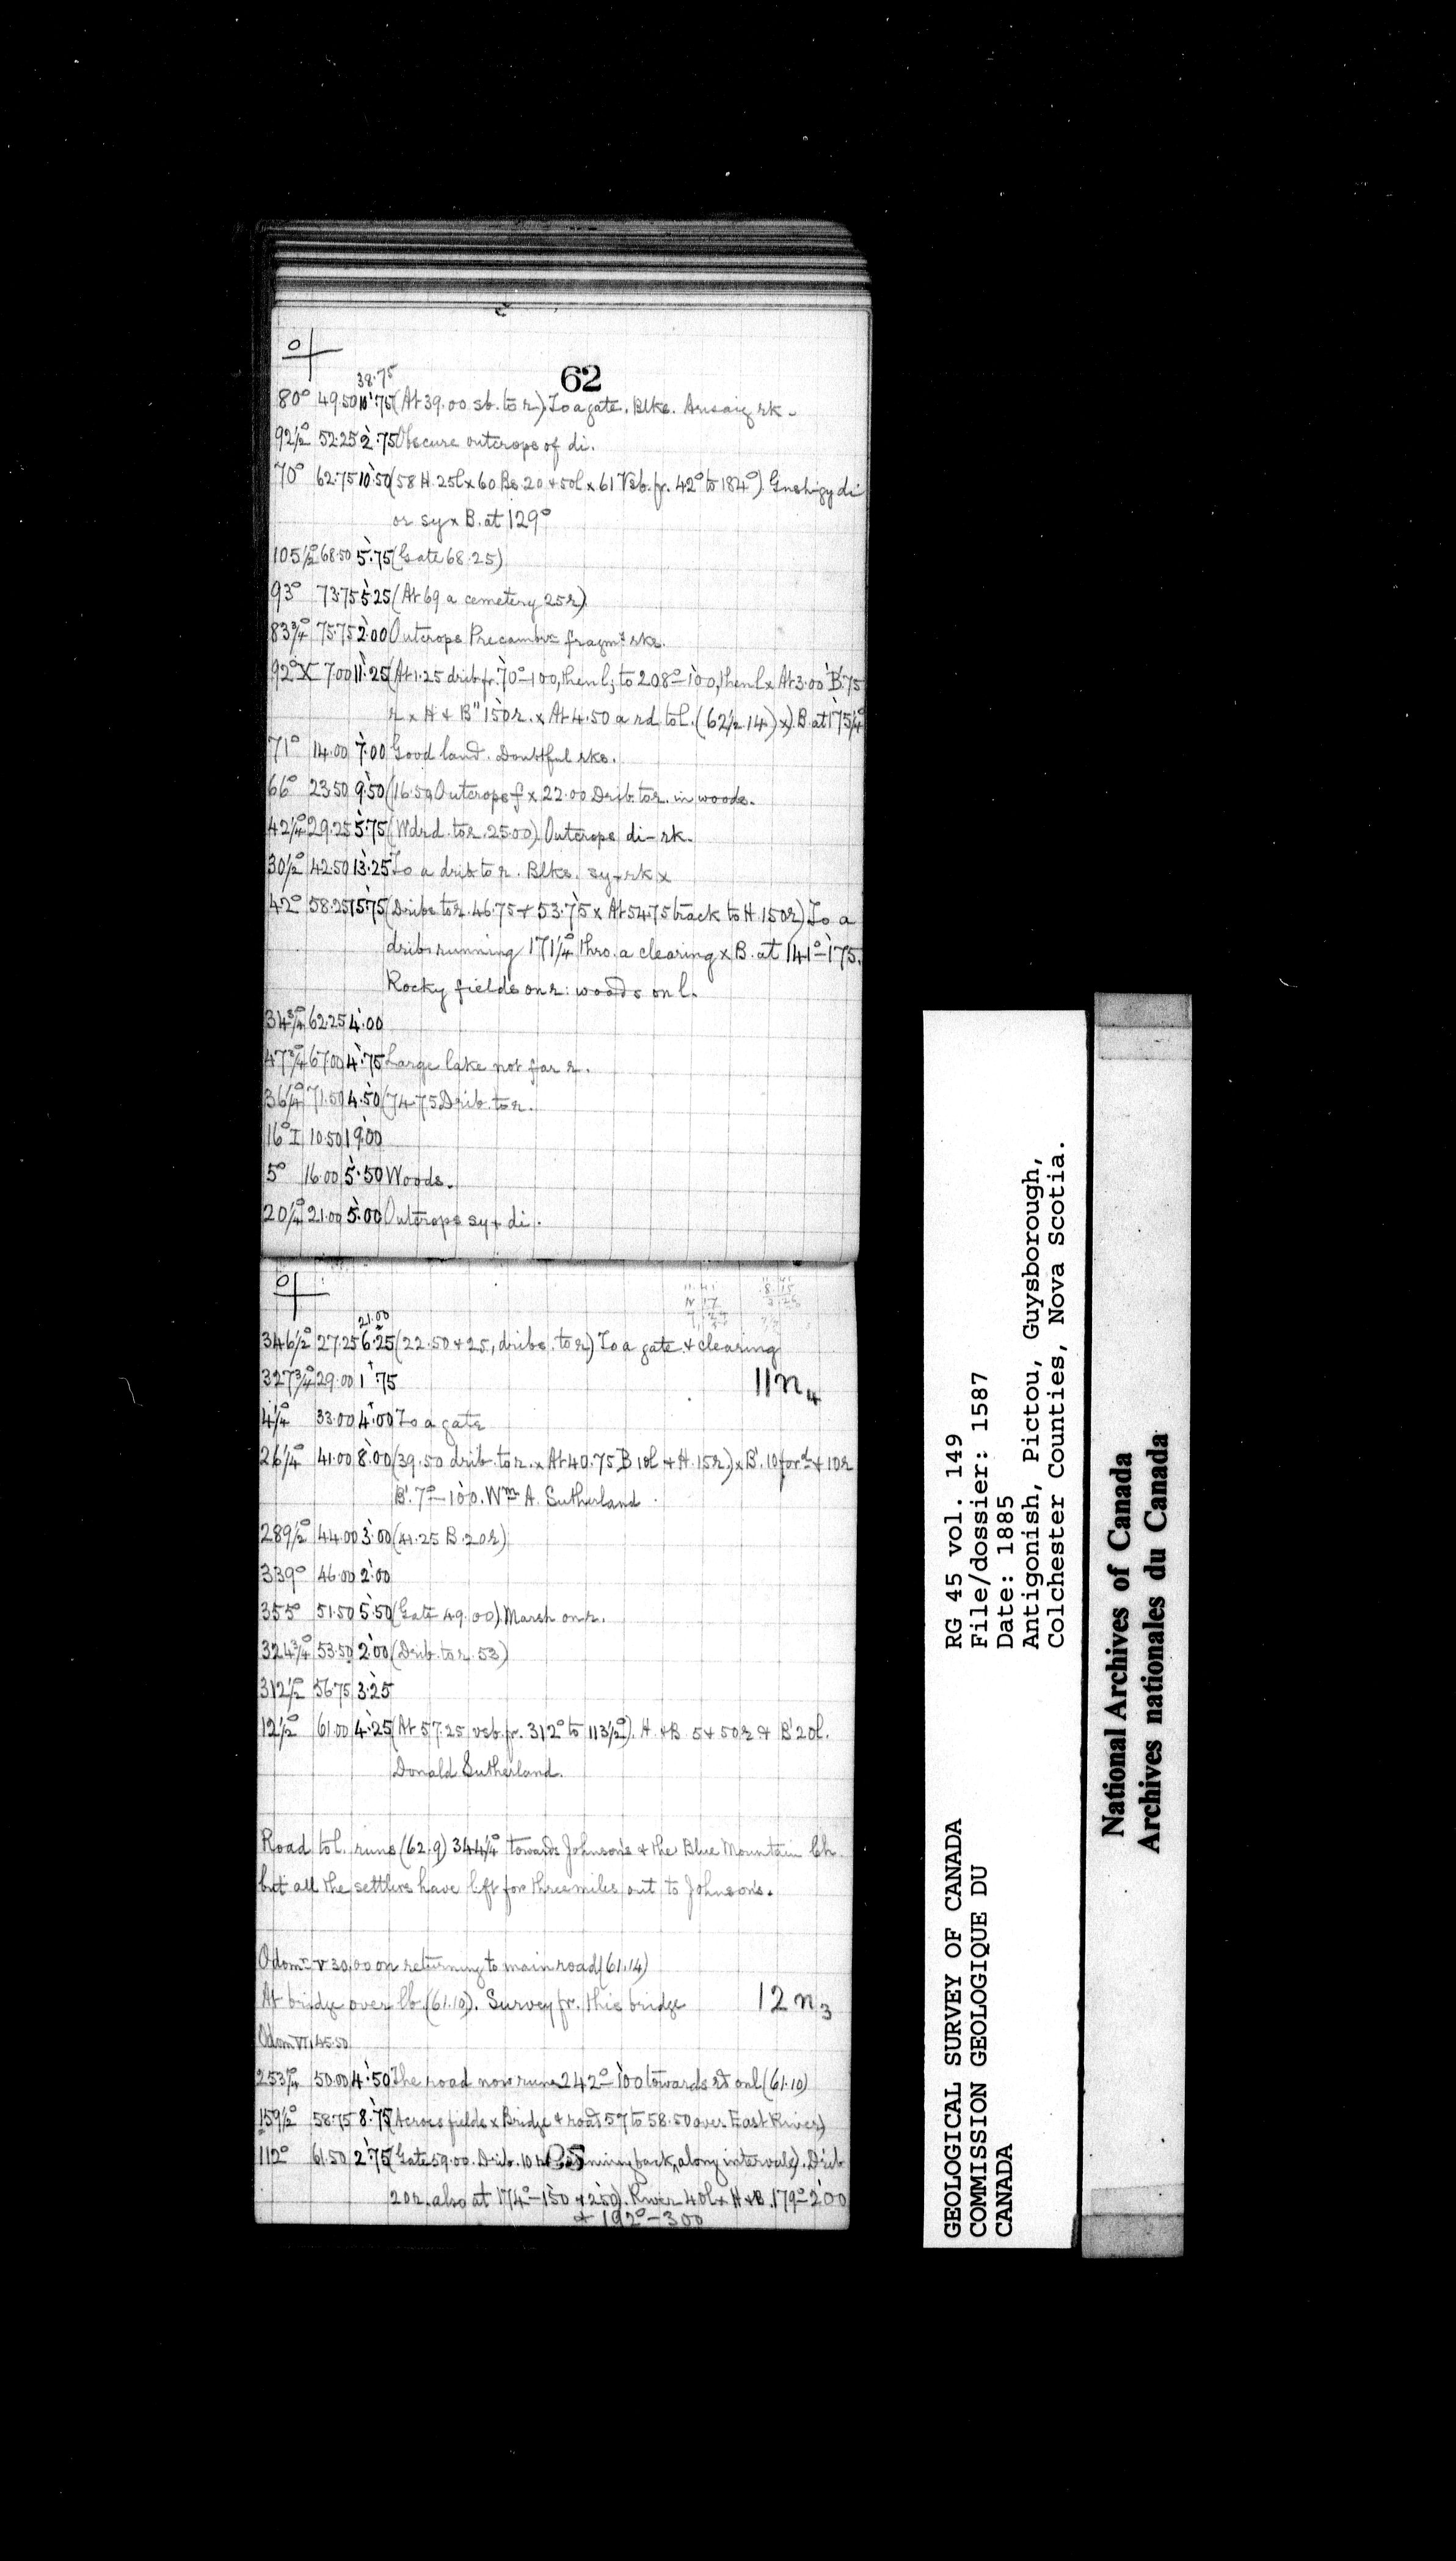 62
38.75
80° 49.50 10.75 (At 39.00 sb. to r) To a gate. Blks. Arisaig rk.
92½° 52.25 2.75 Obscure outcrops of di.
70° 62.75 10.50 (58 H. 25l x 60 Bs. 20 + 50l x 61 Vsb. fr. 42° to 184°) di
or sy x B. at 129°
105½° 68.50 5.75 (Gate 68.25)
93° 73.75 5.25 (At 69 a cemetery 25r)
83¾° 75.75 2.00 Outcrops Precambn fragmt rks.
92° X 7.00 11.25 (At 1.25 drib fr. 70°-100, then l; to 208°-100, then l x At 3.00 B'. 75
r x H + B" 150r. x At 4.50 a rd. to l. (62½.14) x) B. at 175¼°
71° 14.00 7.00 Good land. Doubtful rks.
66° 23.50 9.50 (16.50 Outcrops f x 22.00 Drib. to r. in woods.
42¼° 29.25 5.75 (Wdrd. to r. 25.00) Outcrops di-rk.
30½° 42.50 13.25 To a drib to r. Blks. sy-rk x
42° 58.25 15.75 (Dribs to r. 46.75 + 53.75 x At 54.75 track to H. 150r) To a
drib running 171¼° thro. a clearing x B. at 141°-175.
Rocky fields on r: woods on l.
34¾° 62.25 4.00
47¾° 67.00 4.75 Large lake not far r.
36¼° 71.50 4.50 (74.75 Drib. to r.
16° I 10.50 19.00
5° 16.00 5.50 Woods.
20¼° 21.00 5.00 Outcrops sy + di.
21.00
346½° 27.25 6.25 (22.50 + 25, dribs. to r) To a gate + clearing
327¾° 29.00 1.75 11 n 4
4¼° 33.00 4.00 To a gate
26¼° 41.00 8.00 (39.50 drib. to r. x At 40.75 B 10l + H. 15r.) x B'. 10 ford + 10r
B'. 7°-100. Wm A. Sutherland
289½° 44.00 3.00 (41.25 B. 20r)
339° 46.00 2.00
355° 51.50 5.50 (Gate 49.00) Marsh on r.
324¾° 53.50 2.00 (Drib. to r. 53)
312½° 56.75 3.25
12½° 61.00 4.25 (At 57.25 vsb. fr. 312° to 113½°). H. + B. 5 + 50r + B' 20l.
Donald Sutherland.
Road to l. runs (62.9) 344¼° towards Johnson's + the Blue Mountain Ch.
but all the settlers have left for three miles out to Johnson's.
Odomr V 30.00 on returning to main road (61.14)
At bridge over lb. (61.10). Survey fr. this bridge 12 n 3
Odom VI 45.50
253¼° 50.00 4.50 The road now runs 242°-100 towards st on l (61.10)
159½° 58.75 8.75 (Across fields x Bridge + road 57 to 58.50 over East River)
112° 61.50 2.75 (Gate 59.00. Drib. 10 r running back, along intervale). Drib
20r. also at 174°-150 + 250). River 40l x H + B. 179°-200
+ 192°-300
GEOLOGICAL SURVEY OF CANADA
COMMISSION GEOLOGIQUE DU
CANADA
RG 45 vol. 149
File/dossier: 1587
Date: 1885
Antigonish, Pictou, Guysborough,
Colchester Counties, Nova Scotia.
National Archives of Canada
Archives nationales du Canada